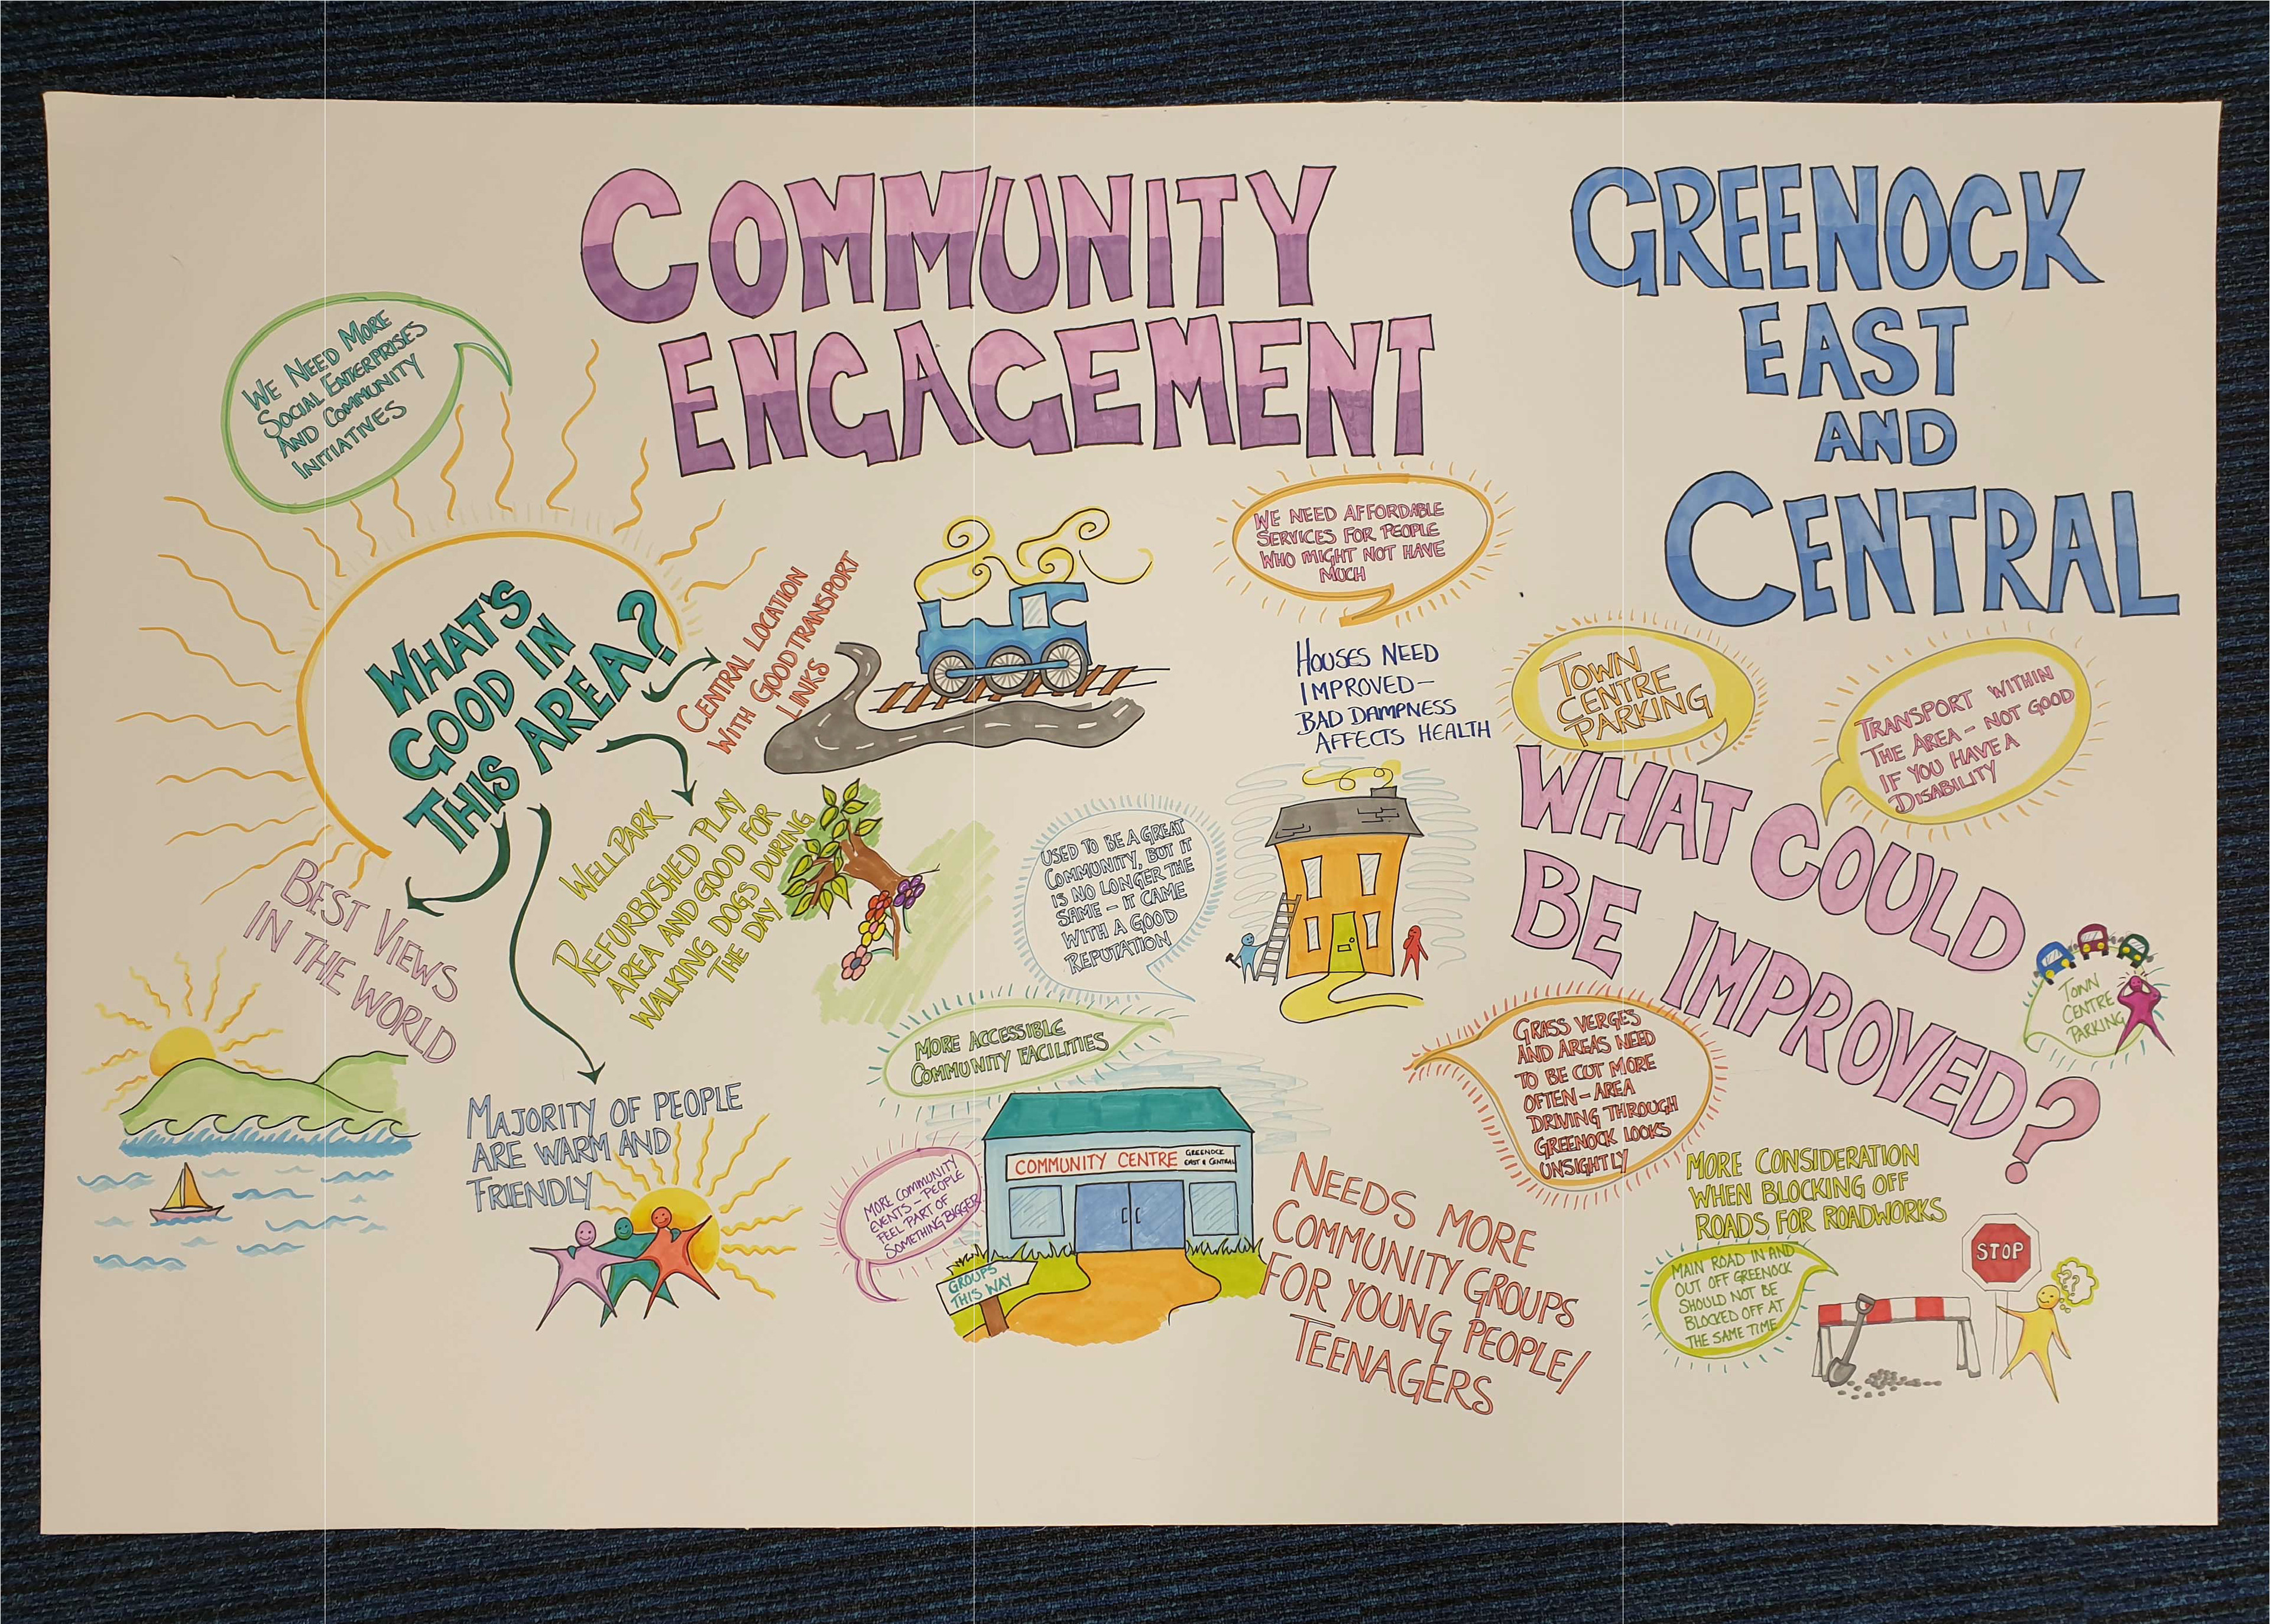 COMMUNITY
ENGAGEMENT
GREENOCK
EAST
AND
CENTRAL
WE NEED MORE
SOCIAL ENTERPRISES
AND COMMUNITY
INITIATIVES
WHAT'S
GOOD IN
THIS AREA?
CENTRAL LOCATION
WITH GOOD TRANSPORT
LINKS
WELLPARK
REFURBISHED PLAY
AREA AND GOOD FOR
WALKING DOGS DURING
THE DAY
BEST VIEWS
IN THE WORLD
MAJORITY OF PEOPLE
ARE WARM AND
FRIENDLY
WE NEED AFFORDABLE
SERVICES FOR PEOPLE
WHO MIGHT NOT HAVE
MUCH
HOUSES NEED
IMPROVED-
BAD DAMPNESS
AFFECTS HEALTH
USED TO BE A GREAT
COMMUNITY, BUT IT
IS NO LONGER THE
SAME - IT CAME
WITH A GOOD
REPUTATION
MORE ACCESSIBLE
COMMUNITY FACILITIES
MORE COMMUNITY
EVENTS - PEOPLE
FEEL PART OF
SOMETHING BIGGER
COMMUNITY CENTRE
GREENOCK
EAST & CENTRAL
GROUPS
THIS WAY
NEEDS MORE
COMMUNITY GROUPS
FOR YOUNG PEOPLE/
TEENAGERS
TOWN
CENTRE
PARKING
TRANSPORT WITHIN
THE AREA - NOT GOOD
IF YOU HAVE A
DISABILITY
WHAT COULD
BE IMPROVED?
TOWN
CENTRE
PARKING
GRASS VERGES
AND AREAS NEED
TO BE CUT MORE
OFTEN - AREA
DRIVING THROUGH
GREENOCK LOOKS
UNSIGHTLY
MORE CONSIDERATION
WHEN BLOCKING OFF
ROADS FOR ROADWORKS
MAIN ROAD IN AND
OUT OFF GREENOCK
SHOULD NOT BE
BLOCKED OFF AT
THE SAME TIME
STOP
???